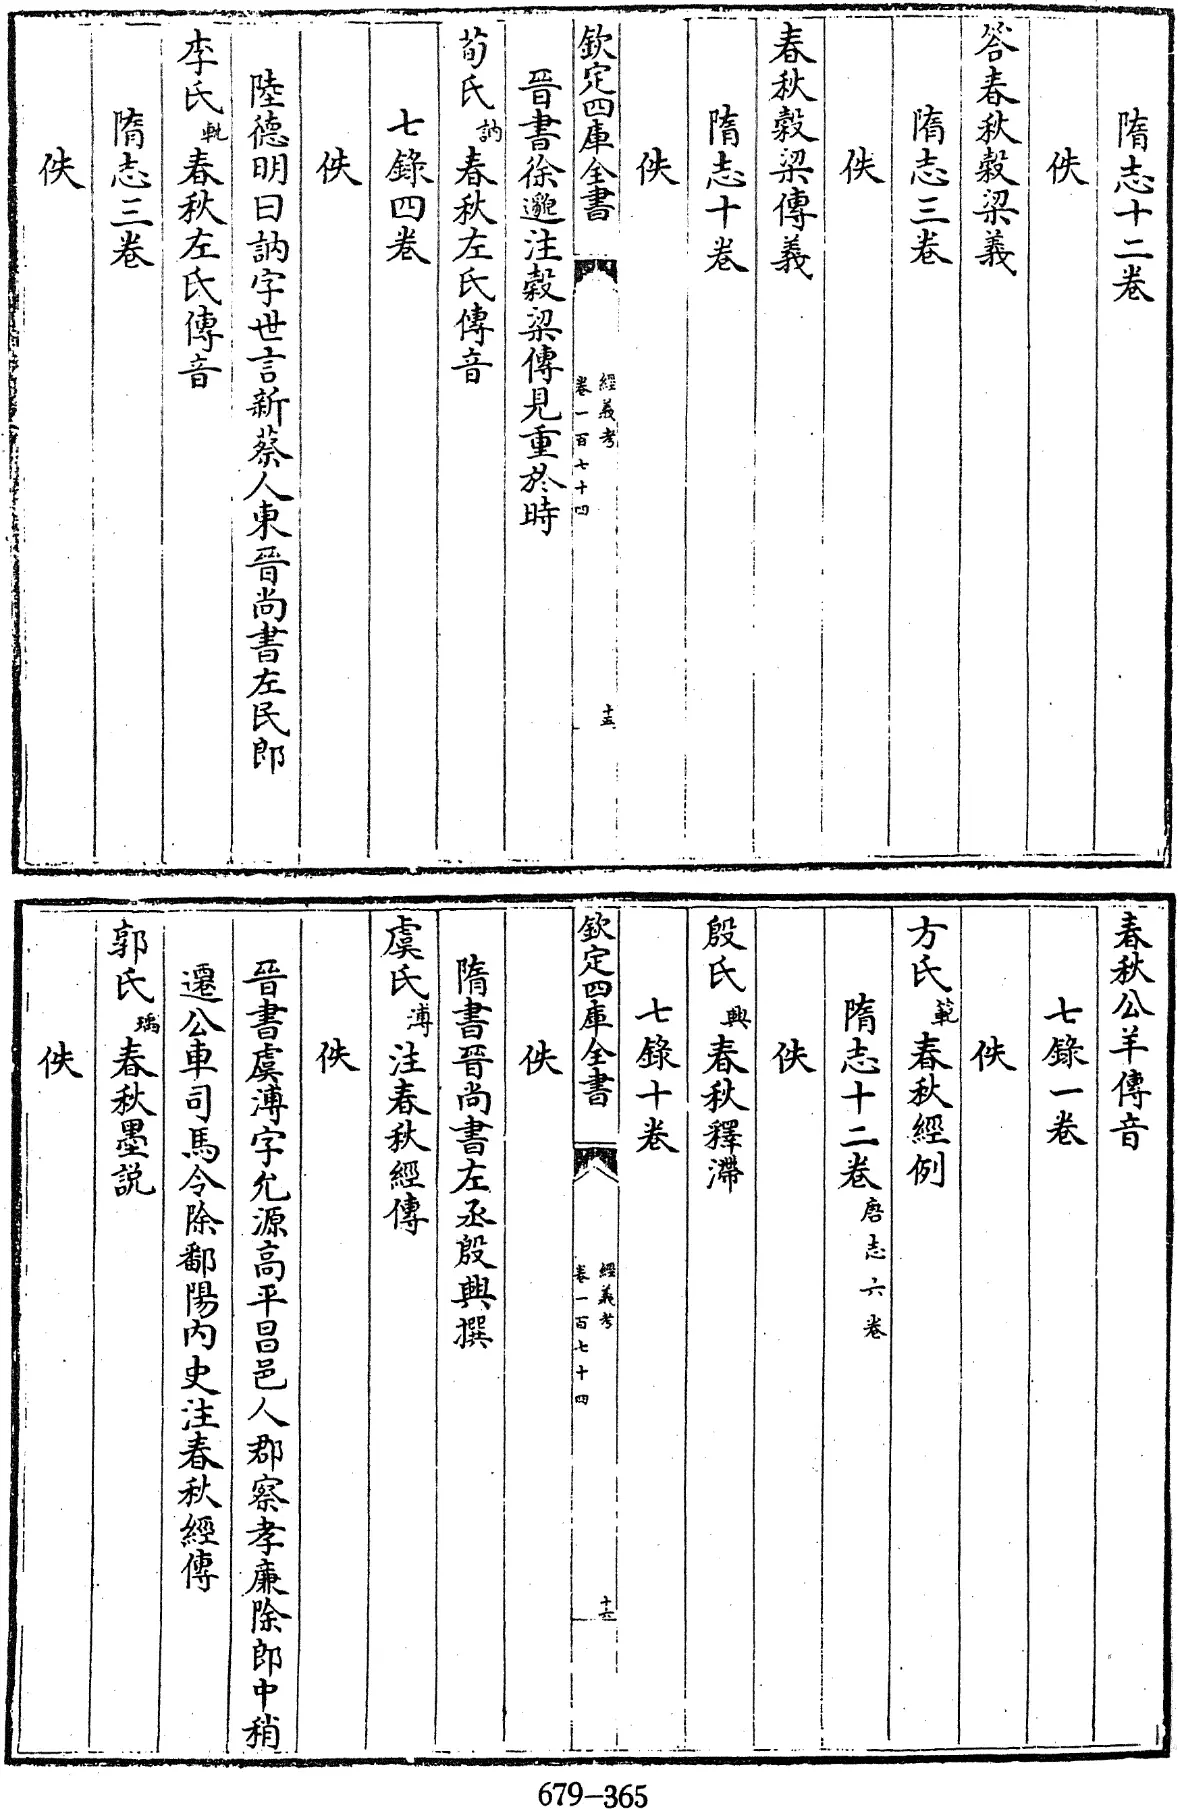 隋志十二卷
佚
答春秋穀梁義
隋志三卷
佚
春秋穀梁傳義
隋志十卷
佚
欽定四庫全書
經義考
卷一百七十四
十五
晉書徐邈注穀梁傳見重於時
荀氏訥春秋左氏傳音
七錄四卷
佚
陸德明曰訥字世言新蔡人東晉尚書左民郎
李氏軌春秋左氏傳音
隋志三卷
佚
春秋公羊傳音
七錄一卷
佚
方氏範春秋經例
隋志十二卷唐志六卷
佚
殷氏興春秋釋滯
七錄十卷
欽定四庫全書
經義考
卷一百七十四
十六
佚
隋書晉尚書左丞殷興撰
虞氏溥注春秋經傳
佚
晉書虞溥字允源高平昌邑人郡察孝廉除郎中稍
遷公車司馬令除鄱陽内史注春秋經傳
郭氏瑀春秋墨説
佚
679-365